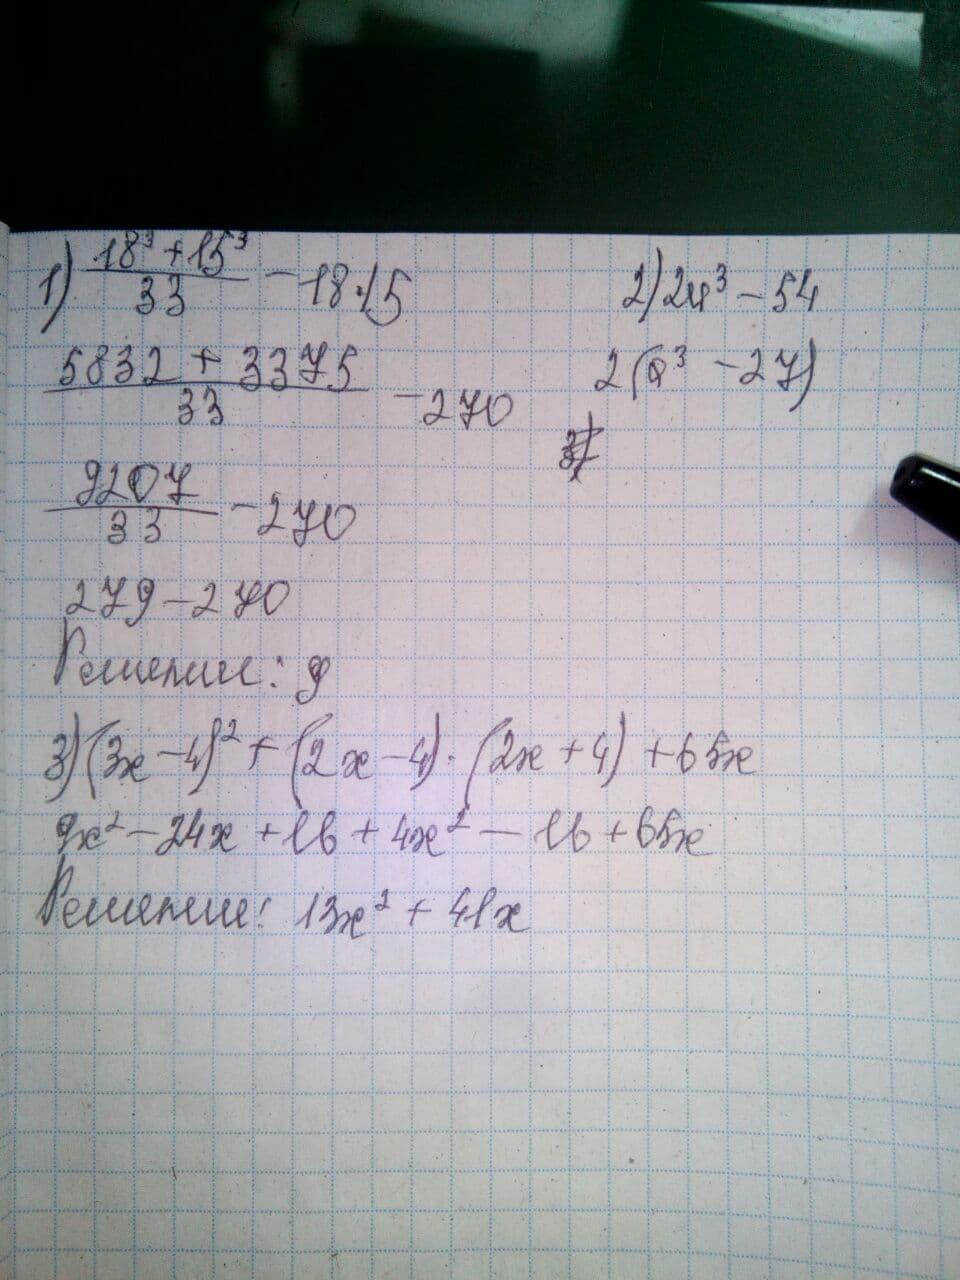 1) (18³ + 15³)/33 - 18·15
(5832 + 3375)/33 - 270
9207/33 - 270
279 - 270
Решение: 9
2) 2a³ - 54
2(a³ - 27)
3) (3x - 4)² + (2x - 4)·(2x + 4) + 65x
9x² - 24x + 16 + 4x² - 16 + 65x
Решение: 13x² + 41x